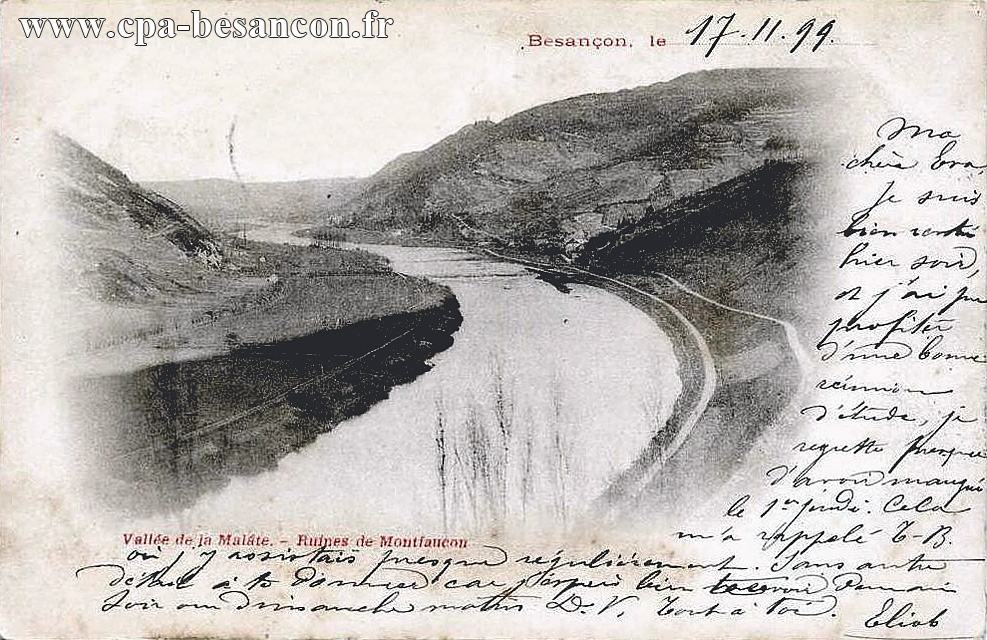 www.cpa-besancon.fr
Besançon, le 17.11.99.
Ma
chère Eva,
Je suis
bien rentré
hier soir,
et j'ai pu
profiter
d'une bonne
réunion
d'étude, je
regrette presque
d'avoir manqué
le 1er jeudi. Cela
m'a rappelé T-B.
Vallée de la Malâte. - Ruines de Montfaucon
où j'y assistais presque régulièrement. Sans autre
détail à te donner car j'espère bien te revoir Samedi
soir ou dimanche matin D.V. Tout à toi.